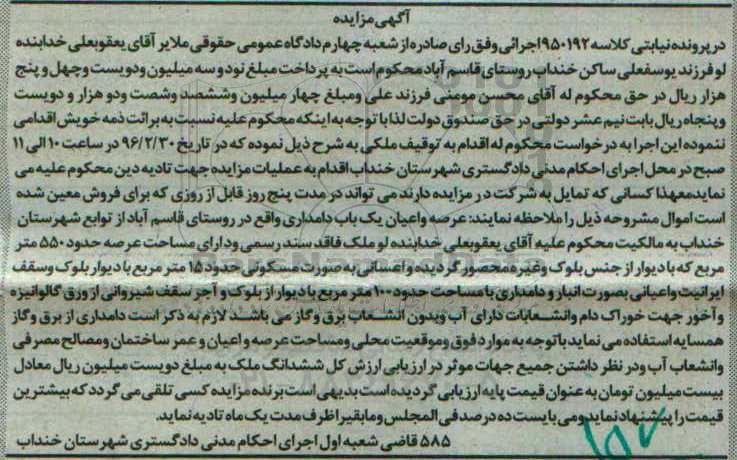 آگهی مزایده
در پرونده نیابتی کلاسه ۹۵۰۱۹۲ اجرائی وفق رای صادره از شعبه چهارم دادگاه عمومی حقوقی ملایر آقای یعقوبعلی خدابنده
لو فرزند یوسفعلی ساکن خنداب روستای قاسم آباد محکوم است به پرداخت مبلغ نود و سه میلیون و دویست و چهل و پنج
هزار ریال در حق محکوم له آقای محسن مومنی فرزند علی و مبلغ چهار میلیون و ششصد و شصت و دو هزار و دویست
و پنجاه ریال بابت نیم عشر دولتی در حق صندوق دولت لذا با توجه به اینکه محکوم علیه نسبت به برائت ذمه خویش اقدامی
ننموده این اجرا به درخواست محکوم له اقدام به توقیف ملکی به شرح ذیل نموده که در تاریخ ۹۶/۲/۳۰ در ساعت ۱۰ الی ۱۱
صبح در محل اجرای احکام مدنی دادگستری شهرستان خنداب اقدام به عملیات مزایده جهت تادیه دین محکوم علیه می
نماید معهذا کسانی که تمایل به شرکت در مزایده دارند می تواند در مدت پنج روز قابل از روزی که برای فروش معین شده
است اموال مشروحه ذیل را ملاحظه نمایند: عرصه واعیان یک باب دامداری واقع در روستای قاسم آباد از توابع شهرستان
خنداب به مالکیت محکوم علیه آقای یعقوبعلی خدابنده لو ملک فاقد سند رسمی و دارای مساحت عرصه حدود ۵۵۰ متر
مربع که با دیوار از جنس بلوک و غیره محصور گردیده و اعیانی به صورت مسکونی حدود ۱۵ متر مربع با دیوار بلوک وسقف
ایرانیت واعیانی بصورت انبار و دامداری با مساحت حدود ۱۰۰ متر مربع با دیوار از بلوک و آجر سقف شیروانی از ورق گالوانیزه
وآخور جهت خوراک دام وانشعابات دارای آب وبدون انشعاب برق و گاز می باشد لازم به ذکر است دامداری از برق وگاز
همسایه استفاده می نماید با توجه به موارد فوق و موقعیت محلی و مساحت عرصه و اعیان و عمر ساختمان و مصالح مصرفی
وانشعاب آب و در نظر داشتن جمیع جهات موثر در ارزیابی ارزش کل ششدانگ ملک به مبلغ دویست میلیون ریال معادل
بیست میلیون تومان به عنوان قیمت پایه ارزیابی گردیده است بدیهی است برنده مزایده کسی تلقی می گردد که بیشترین
قیمت را پیشنهاد نماید و می بایست ده درصد فی المجلس و مابقی را ظرف مدت یک ماه تادیه نماید.
۵۸۵ قاضی شعبه اول اجرای احکام مدنی دادگستری شهرستان خنداب